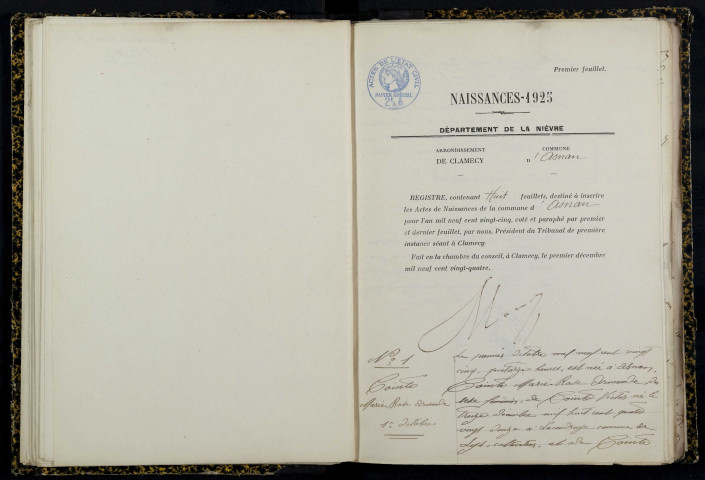 ACTES DE L'ÉTAT CIVIL
PAPIER SPÉCIAL
Premier feuillet.
NAISSANCES-1925
DÉPARTEMENT DE LA NIÈVRE
ARRONDISSEMENT
DE CLAMECY
COMMUNE
D'Asnan
REGISTRE, contenant Huit feuillets, destiné à inscrire
les Actes de Naissances de la commune d'Asnan
pour l'an mil neuf cent vingt-cinq, coté et paraphé par premier
et dernier feuillet, par nous, Président du Tribunal de première
instance séant à Clamecy.
Fait en la chambre du conseil, à Clamecy, le premier décembre
mil neuf cent vingt-quatre.
No 1
Cointe
Marie Rose
1er Octobre
Le premier Octobre mil neuf cent vingt
cinq, heures, est née à Asnan,
Cointe Marie Rose du
sexe féminin, de Cointe né le
treize décembre mil huit cent quatre
vingt douze à commune de
Lys, cultivateur, et de Cointe